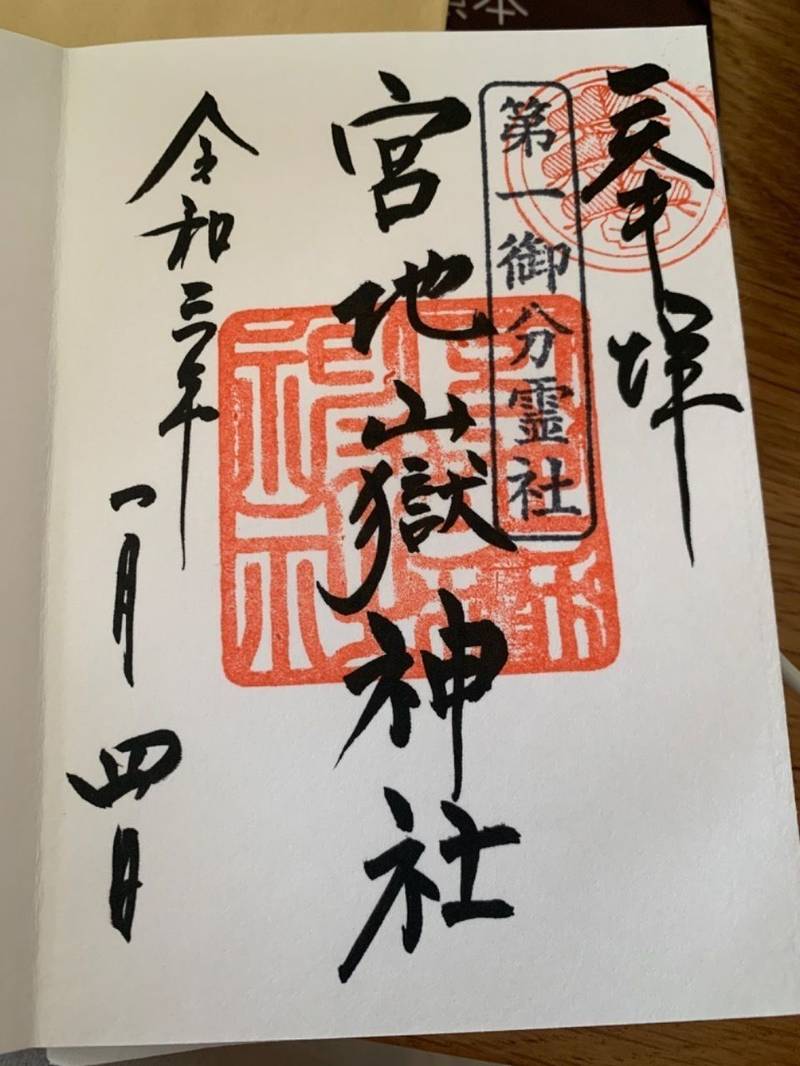 奉拝
第一御分霊社
宮地嶽神社
令和三年
一月四日
本